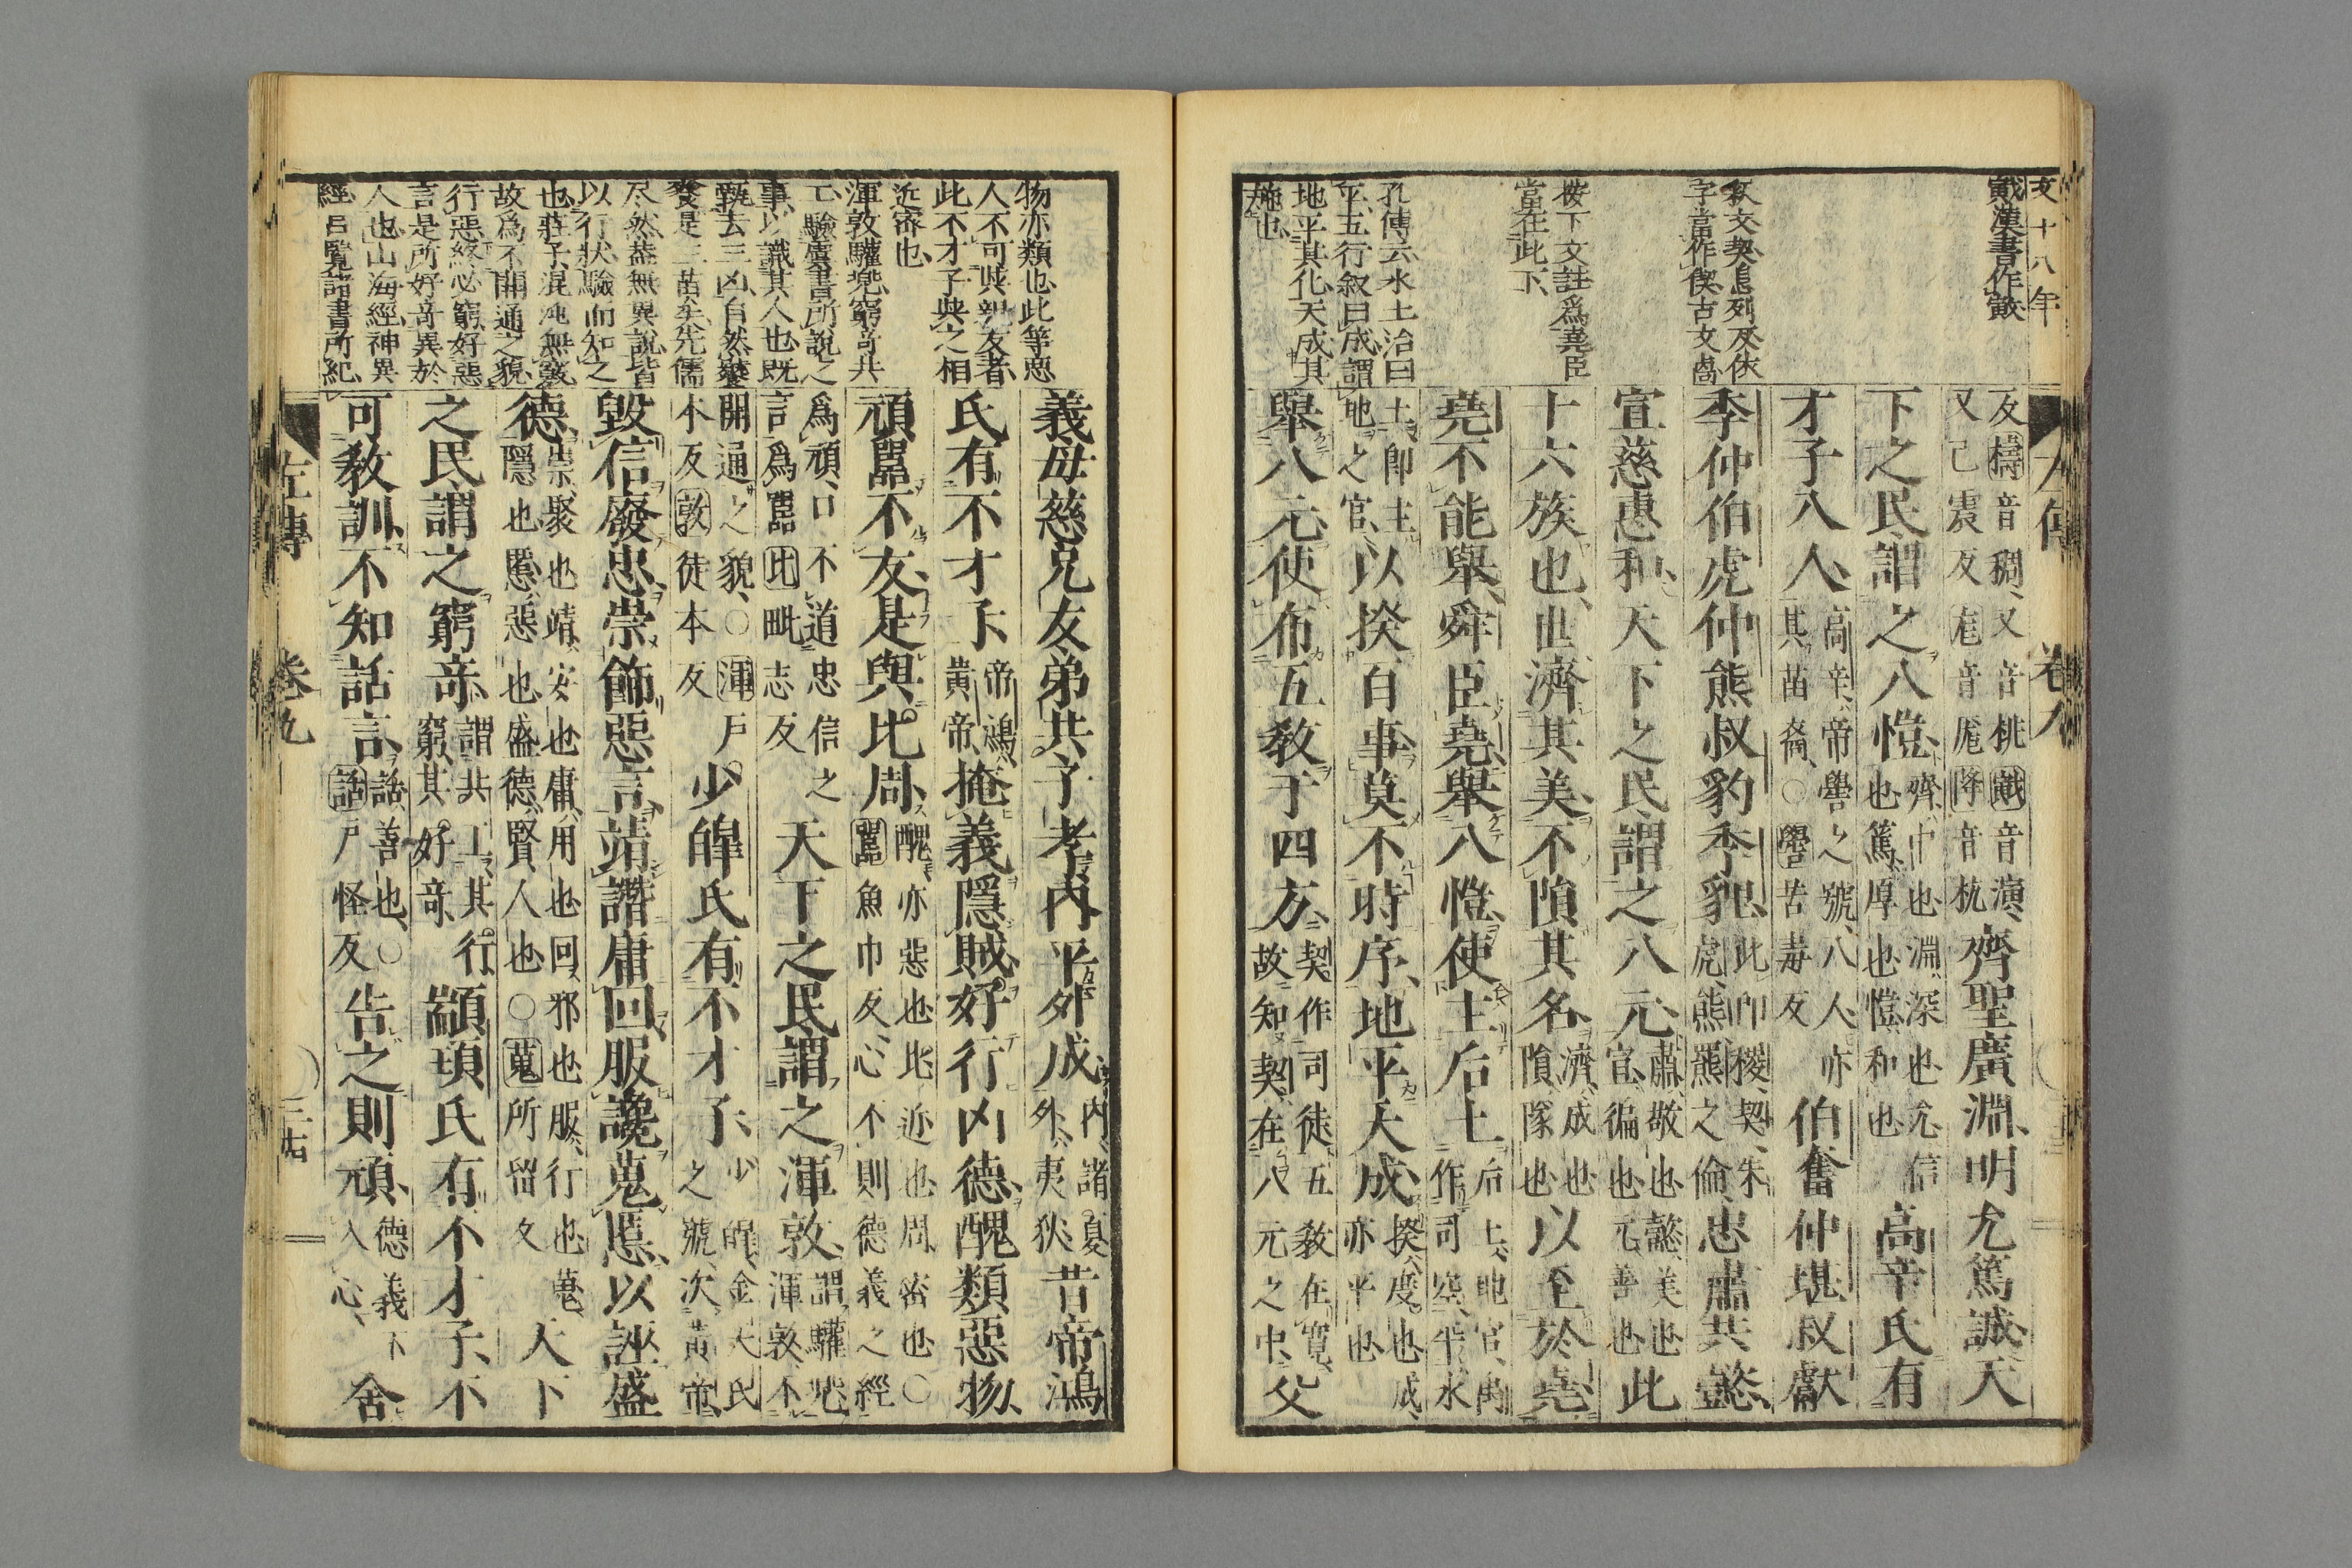 文十八年
戭漢書作敳
釈文契息列反依
字當作偰古文卨
按下文註爲堯臣
當在此下
孔傳云水土治曰
平五行叙曰成謂
地平其化天成其
施也
反檮音稠又音桃戭音演
又已震反厖音尨降音杭
齊聖廣淵明允篤誠天
下之民謂之八愷
齊中也淵深也允信
也篤厚也愷和也
高辛氏有
才子八人
高辛帝嚳之號八人亦
其苗裔○嚳苦毒反
伯奮仲堪叔獻
季仲伯虎仲熊叔豹季貍
此卽稷契朱
虎熊羆之倫
忠肅共懿
宣慈惠和天下之民謂之八元
肅敬也懿美也
宣徧也元善也
此
十六族也世濟其美不隕其名
濟成也
隕隊也
以至於堯
堯不能舉舜臣堯舉八愷使主后土
后土地官禹
作司空平水
土卽主
地之官
以揆百事莫不時序地平天成
揆度也成
亦平也
舉八元使布五敎于四方
契作司徒五敎在寬
故知契在八元之中
父
義母慈兄友弟共子孝內平外成
內諸夏
外夷狄
昔帝鴻
氏有不才子
帝鴻
黃帝
掩義隱賊好行凶德醜類惡物
頑嚚不友是與比周
醜亦惡也比近也周密也○
嚚魚巾反心不則德義之經
爲頑口不道忠信之
言爲嚚比毗志反
天下之民謂之渾敦
謂驩兜
渾敦不
開通之貌○渾戶
本反敦徒本反
少皥氏有不才子
少皥金天氏
之號次黃帝
毀信廢忠崇飾惡言靖譖庸回服讒蒐慝以誣盛
德
崇聚也靖安也庸用也回邪也服行也蒐
隱也慝惡也盛德賢人也○蒐所留反
天下
之民謂之窮奇
謂共工其行
窮其好奇
顓頊氏有不才子不
可敎訓不知話言
話善也○
話戶怪反
告之則頑
德義不
入心
舍
物亦類也此等惡
人不可與親友者
此不才子與之相
近密也
渾敦驩兜窮奇共
工驗虞書所說之
事以識其人也既
甄去三凶自然饕
餮是三苗矣先儒
尽然蓋無異說皆
以行狀驗而知之
也莊子混沌無竅
故爲不開通之貌
行惡終必窮好惡
言是所好奇異於
人也山海經神異
經呂覽諸書所紀
左傳
卷九